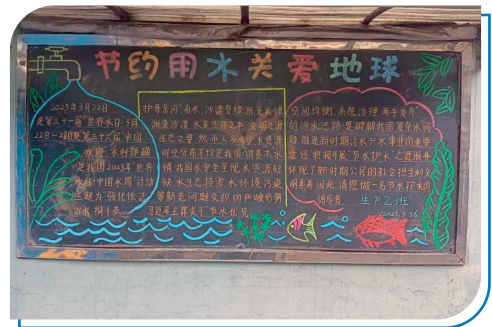 节约用水关爱地球
2023年3月22日
是第三十一届"世界水日",3月
22日-28日是第三十六届"中国
水周"。水利部确
定我国2023年"世界
水日""中国水周"活动
主题为"强化依法
治水 携手
护母亲河"。有水,沙漠变绿洲;无水,绿
洲变沙漠。水是生存之本、文明之源、
生态之要。然而人多水少、水资源
时空分布不均是我国的基本水
情,我国水安全呈现水资源短
缺、水生态损害、水环境污染
等新老问题交织的严峻形势
习近平
节水优先
空间均衡、系统治理、两手发力
的治水思路,
推进新时期治水兴水事业的重要
途径。积极开展"节水护水"志愿服务
体现了新时期公民的社会担当和文
明素养。因此,请您做一名节水护水的
倡导者。
生产乙班
2023.3.26